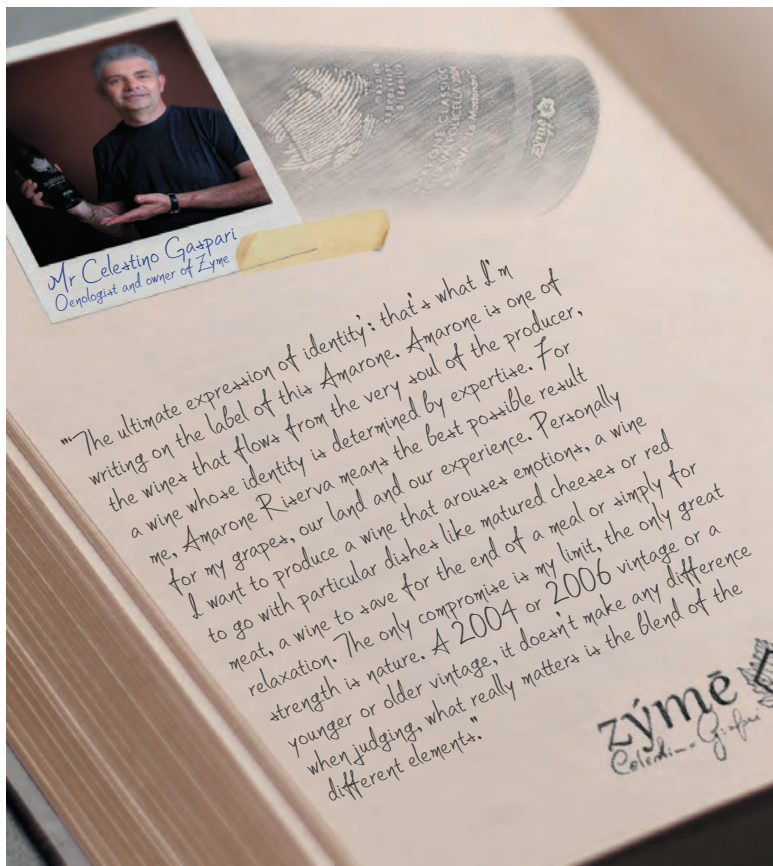 Massima
Espressione
d'Identità
AMARONE CLASSICO
zýmē
Mr Celestino Gaspari
Oenologist and owner of Zyme
"'The ultimate expression of identity': that's what I'm
writing on the label of this Amarone. Amarone is one of
the wines that flows from the very soul of the producer,
a wine whose identity is determined by expertise. For
me, Amarone Riserva means the best possible result
for my grapes, our land and our experience. Personally
I want to produce a wine that arouses emotions, a wine
to go with particular dishes like matured cheeses or red
meat, a wine to save for the end of a meal or simply for
relaxation. The only compromise is my limit, the only great
strength is nature. A 2004 or 2006 vintage or a
younger or older vintage, it doesn't make any difference
when judging, what really matters is the blend of the
different elements."
zýmē
Celestino Gaspari